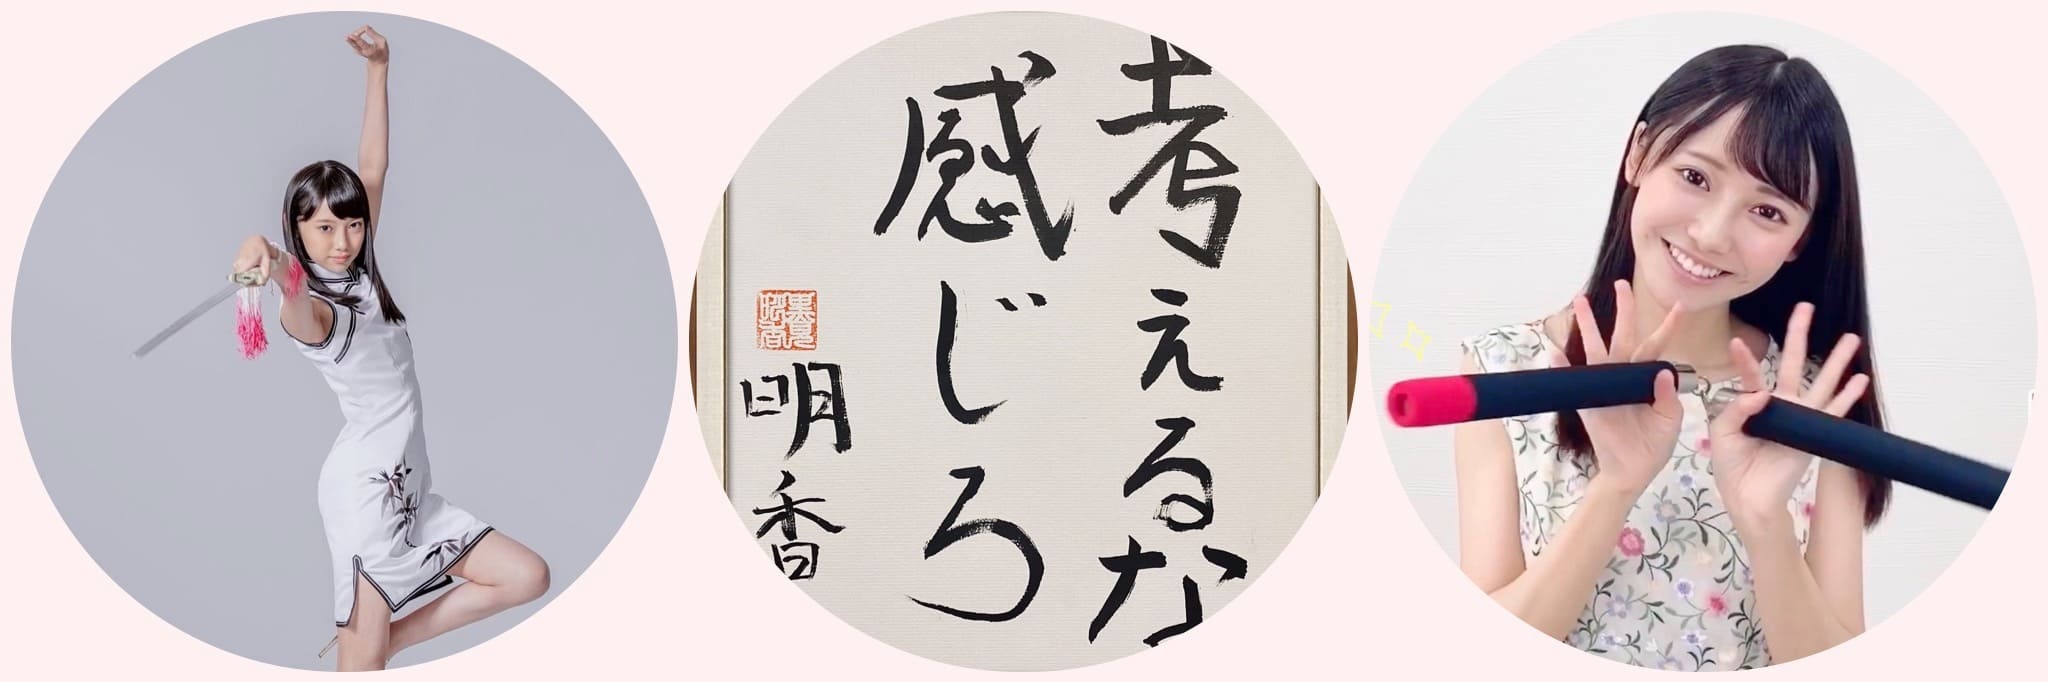 考えるな
感じろ
明香